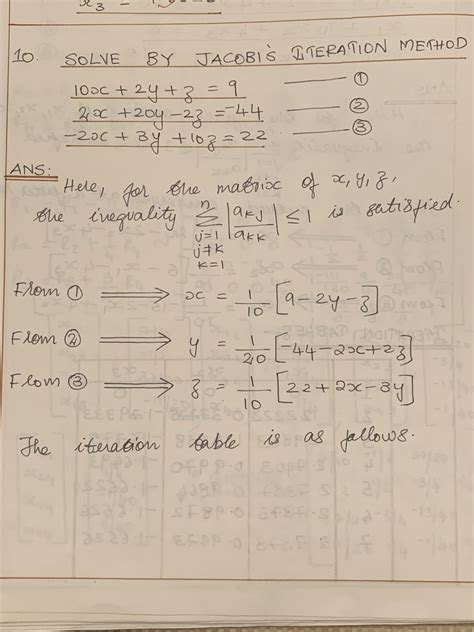 10. SOLVE BY JACOBI'S ITERATION METHOD
10x + 2y + z = 9 ①
2x + 20y - 2z = -44 ②
-2x + 3y + 10z = 22 ③
ANS:
Here, for the matrix of x, y, z,
the inequality n∑j=1 j≠k k=1 |akj/akk| ≤ 1 is satisfied.
From ① ⟹ x = 1/10 [9 - 2y - z]
From ② ⟹ y = 1/20 [-44 - 2x + 2z]
From ③ ⟹ z = 1/10 [22 + 2x - 3y]
The iteration table is as follows.